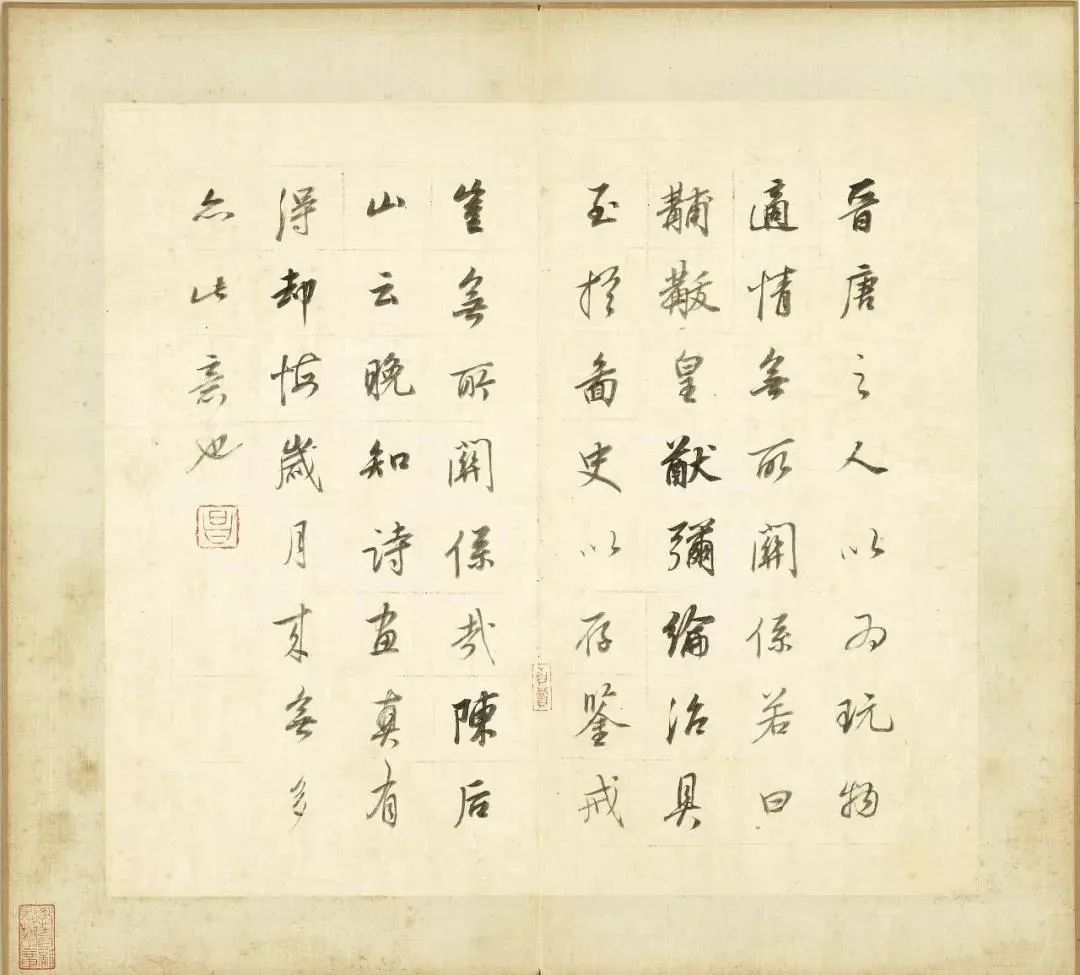 晉唐之人以為玩物
適情無所關係若曰
黼黻皇猷彌綸治具
至於圖史以存鑒戒
豈無所關係哉陳后
山云晚知詩畫真有
得却悔歲月來無多
亦此意也
昌